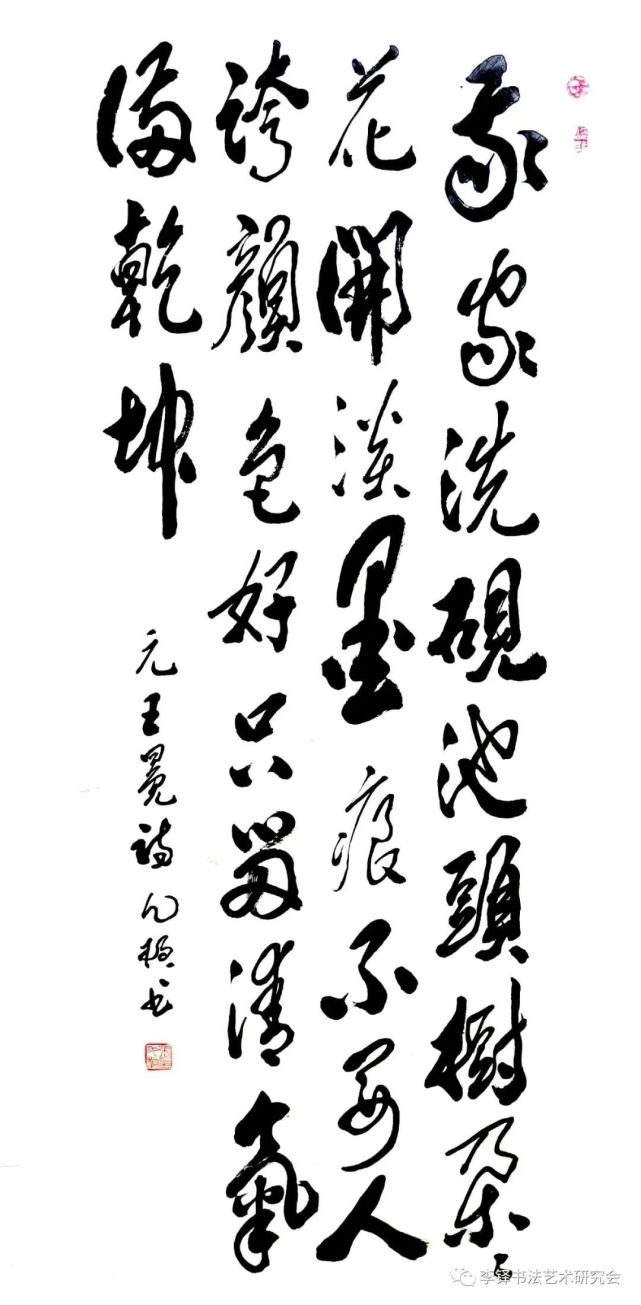 我家洗硯池頭樹朵々
花開淡墨痕不要人
誇顏色好只留清氣
滿乾坤
元王冕詩 书
李铎书法艺术研究会